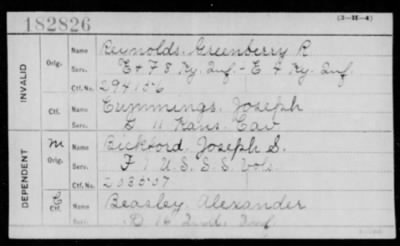 182826
(3-H-4)
INVALID
Orig. Name Reynolds, Greenberry R
Serv. E & F 8 Ky. Inf. - E 4 Ky. Inf.
Ctf. No. 294156
Ctf. Name Cummings, Joseph
Serv. G 11 Kans. Cav
DEPENDENT
M Orig. Name Bickford, Joseph S.
Serv. F 1 U.S.S.S. Vols.
Ctf. No. 203507
Ctf. Name Beasley, Alexander
Serv. D 16 Ind. Inf